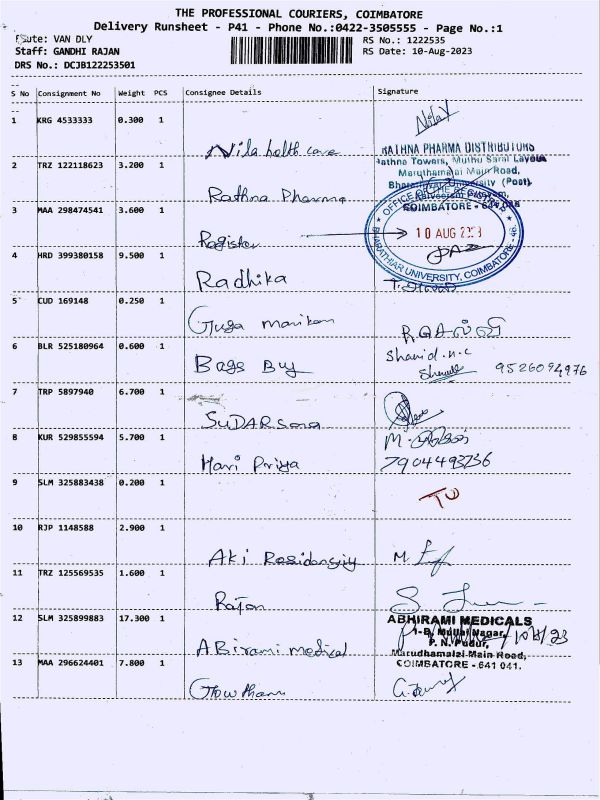 THE PROFESSIONAL COURIERS, COIMBATORE
Delivery Runsheet - P41 - Phone No.:0422-3505555 - Page No.:1
Route: VAN DLY
RS No.: 1222535
Staff: GANDHI RAJAN
RS Date: 10-Aug-2023
DRS No.: DCJB122253501
S No Consignment No Weight PCS Consignee Details Signature
1 KRG 4533333 0.300 1
Nila helth care
RATHNA PHARMA DISTRIBUTORS
Rathna Towers, Muthu Saral Layout
2 TRZ 122118623 3.200 1
Maruthamalai Main Road,
Bharathiar University (Post),
Rathna Pharma
COIMBATORE
3 MAA 298474541 3.600 1
OFFICE OF THE REGISTRAR
10 AUG 2023
BHARATHIAR UNIVERSITY, COIMBATORE - 46.
Register
4 HRD 399380158 9.500 1
Radhika
5 CUD 169148 0.250 1
Guga manikan
6 BLR 525180964 0.600 1
Shanid.n.c
Bags Buy
9526094976
7 TRP 5897940 6.700 1
SUDARSana
8 KUR 529855594 5.700 1
Hari Priya
7904493736
9 SLM 325883438 0.200 1
10 RJP 1148588 2.900 1
Aki Residansiy
11 TRZ 125569535 1.600 1
Rajan
12 SLM 325899883 17.300 1
ABHIRAMI MEDICALS
1-B, Mullai Nagar,
P. N. Pudur,
Marudhamalai Main Road,
COIMBATORE - 641 041.
ABirami medical
13 MAA 296624401 7.800 1
Gowtham